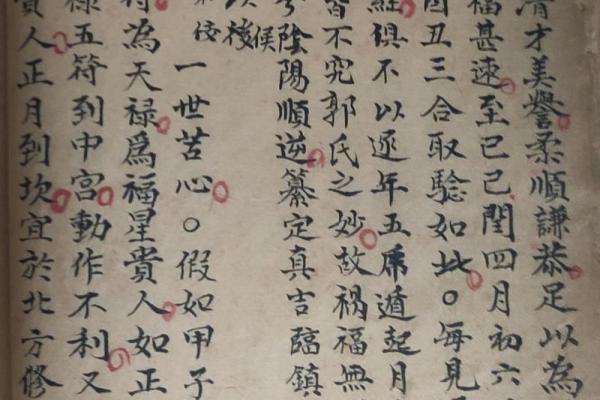 清才美譽柔順謙恭足以為
福甚速至己巳閏四月初六
酉丑三合取驗如此○每見
經俱不以逐年五虎遁起月
皆不究郭氏之妙故禍福無
陰陽順逆纂定真吉臨鎮
侯
後
一世苦心○假如甲子
為天禄爲福星貴人如正
禄五符到中宮動作不利又
貴人正月到坎宜於北方修